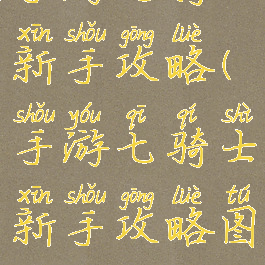 xīn shǒu gōng lüè
新手攻略(
shǒu yóu qī qí shì
手游七骑士
xīn shǒu gōng lüè tú
新手攻略图